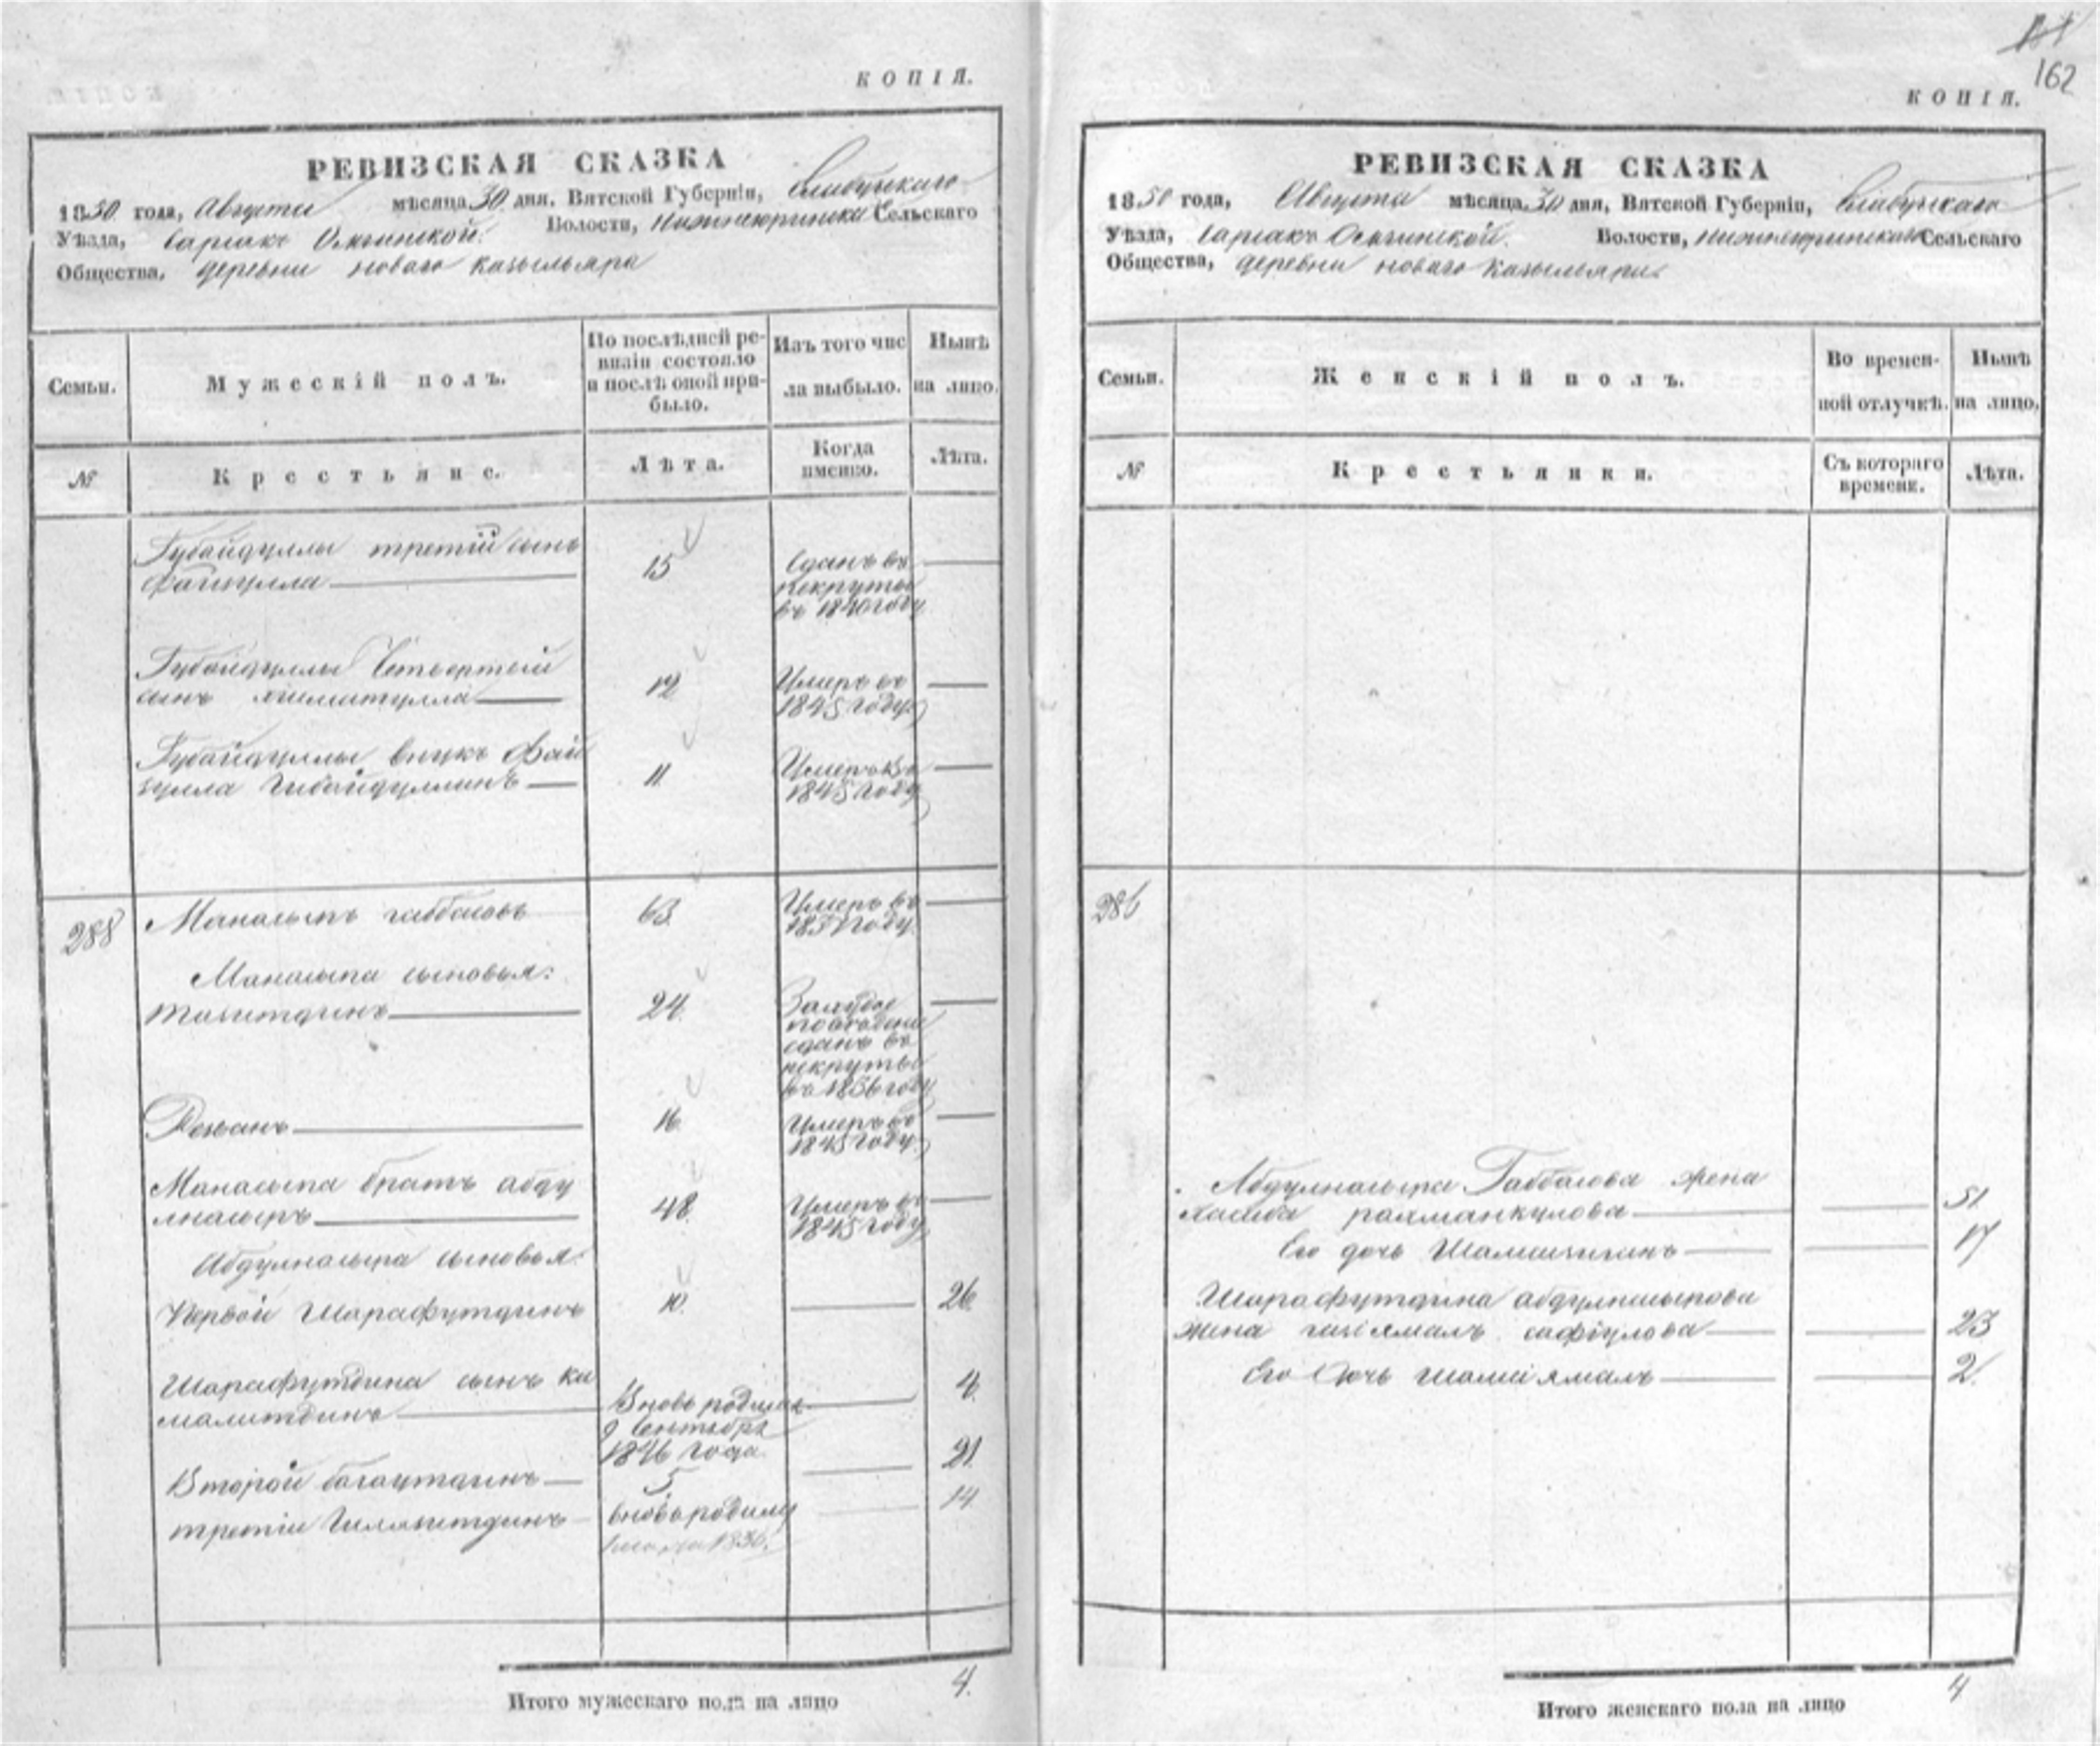 КОПІЯ.
РЕВИЗСКАЯ СКАЗКА
1850 года, Августа мѣсяца 30 дня, Вятской Губерніи, Елабужскаго
Уѣзда, Волости, Сельскаго
Общества, деревни новаго
Семьи.
Мужескій полъ.
По послѣдней ре-
визіи состояло
и послѣ оной при-
было.
Изъ того чис
ла выбыло.
Нынѣ
на лицо.
№
Крестьяне.
Лѣта.
Когда
именно.
Лѣта.
Губайдуллы третій сынъ
Файзулла
15
Сданъ въ
рекруты
въ 1840 году
Губайдуллы Четвертый
сынъ
12
Умеръ въ
1845 году
Губайдуллы внукъ Фай
зулла Губайдуллинъ
11
Умеръ въ
1845 году
288
Манасыпъ Габбасовъ
63
Умеръ въ
1837 году
Манасыпа сыновья:
24
сданъ въ
рекруты
въ 1836 году
16
Умеръ въ
1845 году
Манасыпа братъ абду
лнасыръ
48
Умеръ въ
1845 году
Абдулнасыра сыновья:
Первой Шарафутдинъ
10
26
Шарафутдина сынъ ка
малитдинъ
Вновь родился
9 Сентября
1846 года
4
Второй багаутдинъ
5
21
третій Гилязитдинъ
вновь родился
1836.
14
Итого мужескаго пола на лицо
4.
162
КОПІЯ.
РЕВИЗСКАЯ СКАЗКА
1850 года, Августа мѣсяца 30 дня, Вятской Губерніи, Елабужскаго
Уѣзда, Волости, Сельскаго
Общества, деревни новаго
Семьи.
Женскій полъ.
Во времен-
ной отлучкѣ.
Нынѣ
на лицо.
№
Крестьянки.
Съ котораго
времени.
Лѣта.
286
Абдулнасыра Габбасова жена
рахманкулова
51
Его дочь
17
Шарафутдина абдулнасырова
жена сафіулова
23
Его дочь шамсіямалъ
2
Итого женскаго пола на лицо
4